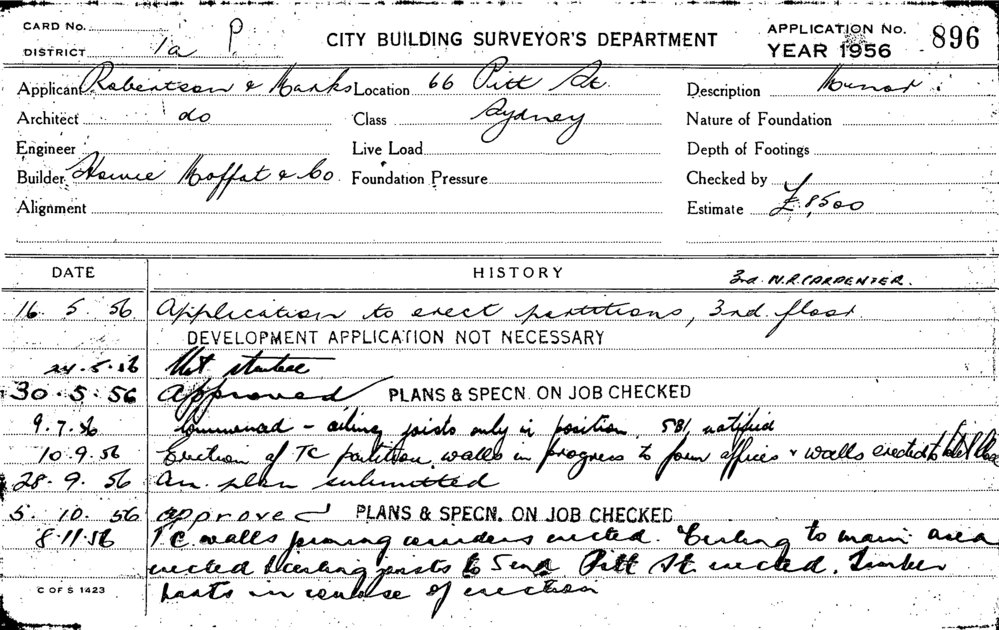 CARD No.
DISTRICT 1a P
CITY BUILDING SURVEYOR'S DEPARTMENT
APPLICATION No. 896
YEAR 1956
Applicant Robertson & Marks Location 66 Pitt St. Description Minor
Architect do Class Sydney Nature of Foundation
Engineer Live Load Depth of Footings
Builder Howie Moffat & Co. Foundation Pressure Checked by
Alignment Estimate £8,500
DATE HISTORY 3rd. W.R. CARPENTER.
16. 5. 56 Application to erect partitions, 3rd floor
DEVELOPMENT APPLICATION NOT NECESSARY
24.5.56 Not started
30.5.56 Approved PLANS & SPECN. ON JOB CHECKED
9.7.56 Commenced - ceiling joists only in position. 581 notified
10.9.56 Erection of TC partition walls in progress to form offices & walls erected to
28.9.56 Am. plan submitted
5. 10. 56 approved PLANS & SPECN. ON JOB CHECKED
8.11.56 T.C. walls forming corridors erected. Ceiling to main area
erected & ceiling joists to Pitt St. erected. Timber
in course of erection
C OF S 1423